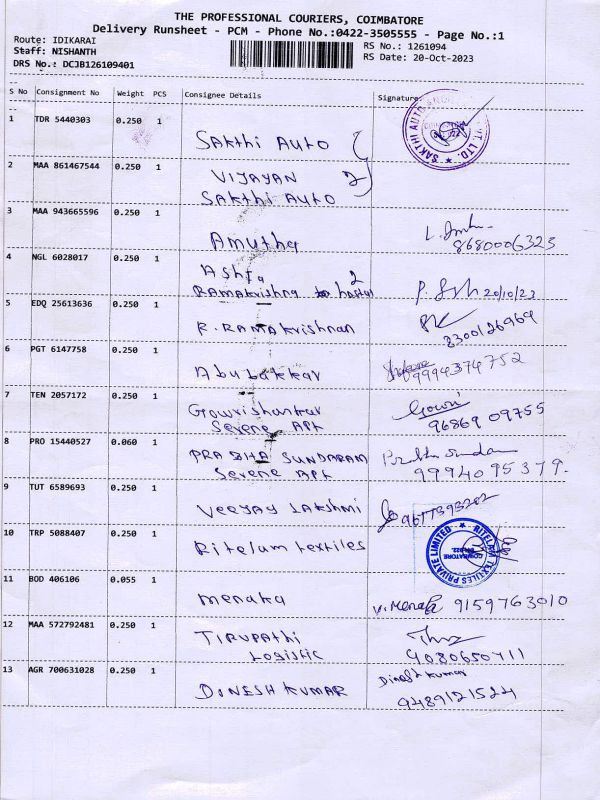 THE PROFESSIONAL COURIERS, COIMBATORE
Delivery Runsheet - PCM - Phone No.:0422-3505555 - Page No.:1
Route: IDIKARAI
Staff: NISHANTH
DRS No.: DCJB126109401
RS No.: 1261094
RS Date: 20-Oct-2023
S No Consignment No Weight PCS Consignee Details Signature
1 TDR 5440303 0.250 1 Sakthi Auto
SAKTHI AUTO
2 MAA 861467544 0.250 1 VIJAYAN 2
Sakthi Auto
3 MAA 943665596 0.250 1 Amutha
8680006323
4 NGL 6028017 0.250 1 Ashfa 2
Ramakrishna hostel 20/10/23
5 EDQ 25613636 0.250 1 R.Ramakrishnan
8300126969
6 PGT 6147758 0.250 1 Abubakkar
9994374752
7 TEN 2057172 0.250 1 Gowrishankar Gowri
Serene Apt 96869 09755
8 PRO 15440527 0.060 1 PRABHA SUNDARAM
Serene Apt 99940 95379.
9 TUT 6589693 0.250 1 Veejay Lakshmi
9677393202
10 TRP 5088407 0.250 1 Ritelum textiles
TEXTILES PRIVATE LIMITED
COIMBATORE
11 BOD 406106 0.055 1 menaka V. Menaka 9159763010
12 MAA 572792481 0.250 1 Tirupathi
Logistic 9080650711
13 AGR 700631028 0.250 1 DINESH KUMAR Dinesh kumar
9489121524